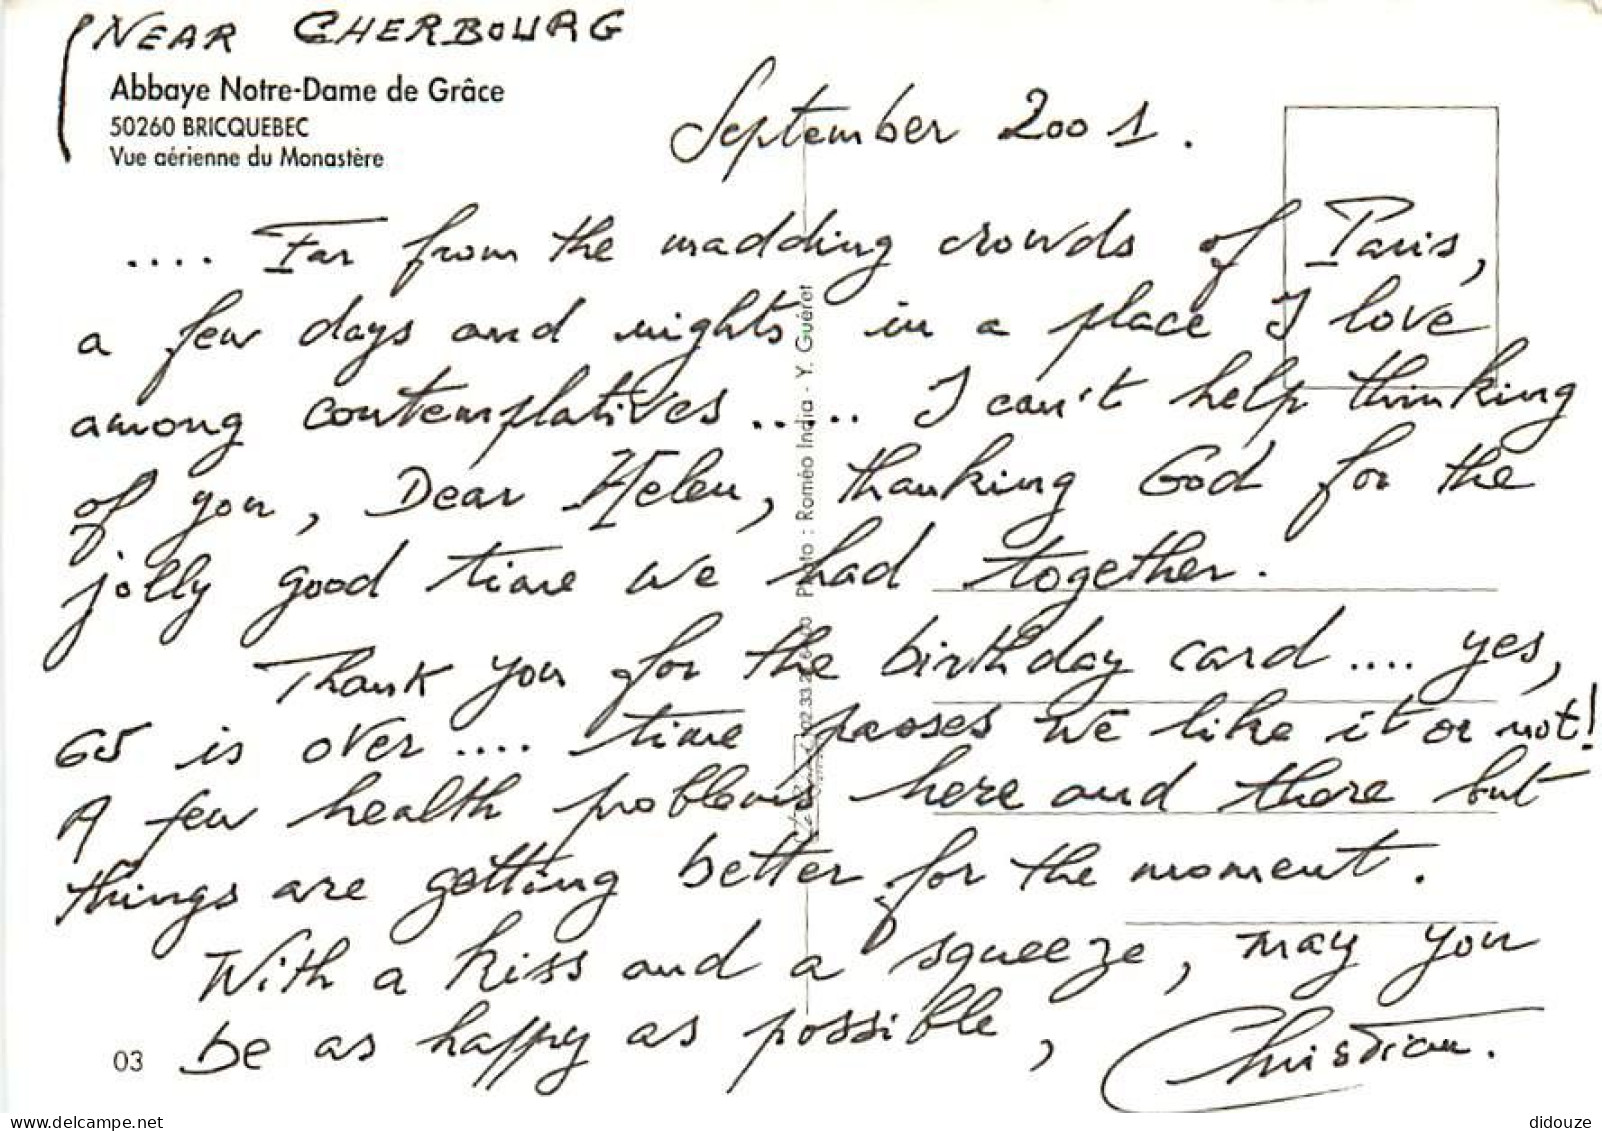 NEAR CHERBOURG
Abbaye Notre-Dame de Grâce
50260 BRICQUEBEC
Vue aérienne du Monastère
September 2001.
.... Far from the madding crowds of Paris,
a few days and nights in a place I love
among contemplatives ..... I can't help thinking
of you, Dear Helen, thanking God for the
jolly good time we had together.
Thank you for the birthday card .... yes,
65 is over .... time passes we like it or not!
A few health problems here and there but
things are getting better for the moment.
With a kiss and a squeeze, may you
be as happy as possible,
Christian.
03
Photo : Roméo India - Y. Guéret
02.33.
delcampe.net
didouze